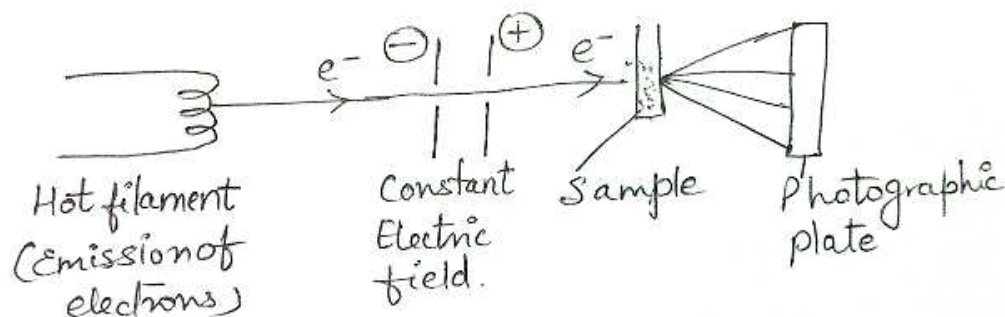 e⁻
⊖
⊕
e⁻
Hot filament
(Emission of
electrons)
Constant
Electric
field.
Sample
Photographic
plate